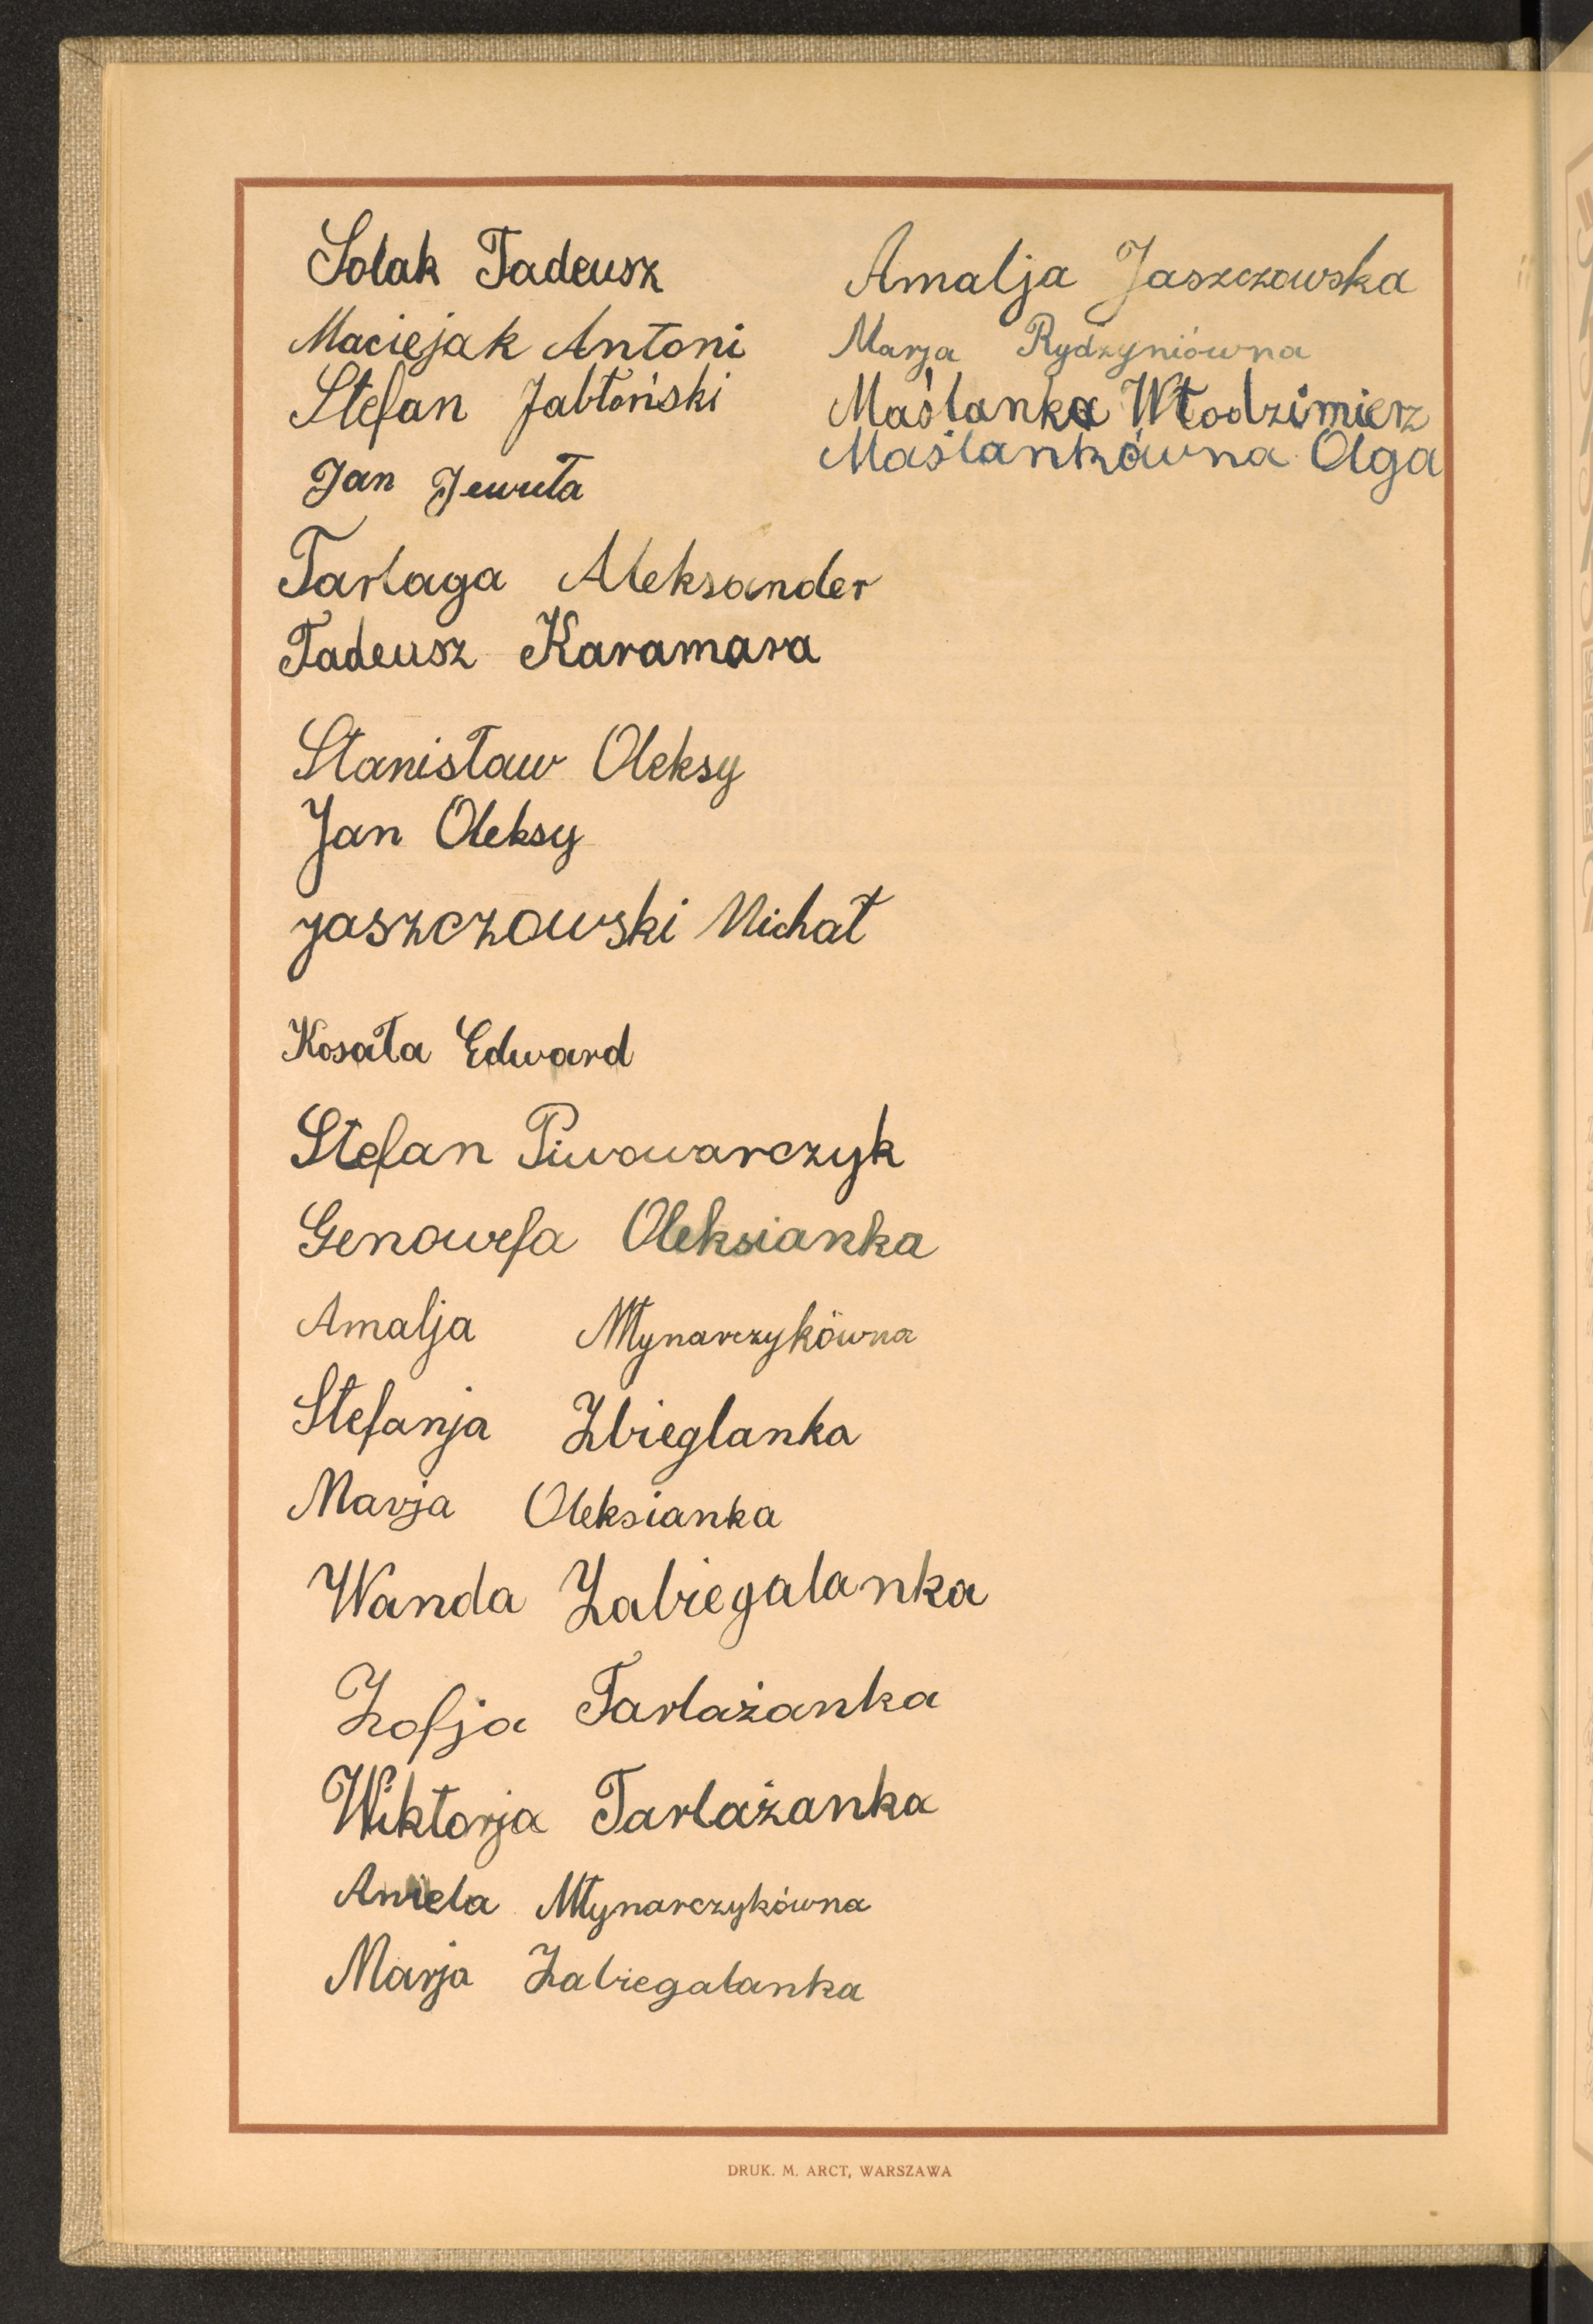 Solak Tadeusz
Maciejak Antoni
Stefan Jabłoński
Jan Jewuła
Tarlaga Aleksander
Tadeusz Karamara
Stanisław Oleksy
Jan Oleksy
Jaszczowski Michał
Kosała Edward
Stefan Piwowarczyk
Genowefa Oleksianka
Amalja Młynarczykówna
Stefanja Zbieglanka
Marja Oleksianka
Wanda Zabiegalanka
Zofja Tarlażanka
Wiktorja Tarlażanka
Aniela Młynarczykówna
Marja Zabiegalanka
Amalja Jaszczowska
Marja Rydzyniówna
Maślanka Włodzimierz
Maślankówna Olga
DRUK. M. ARCT, WARSZAWA